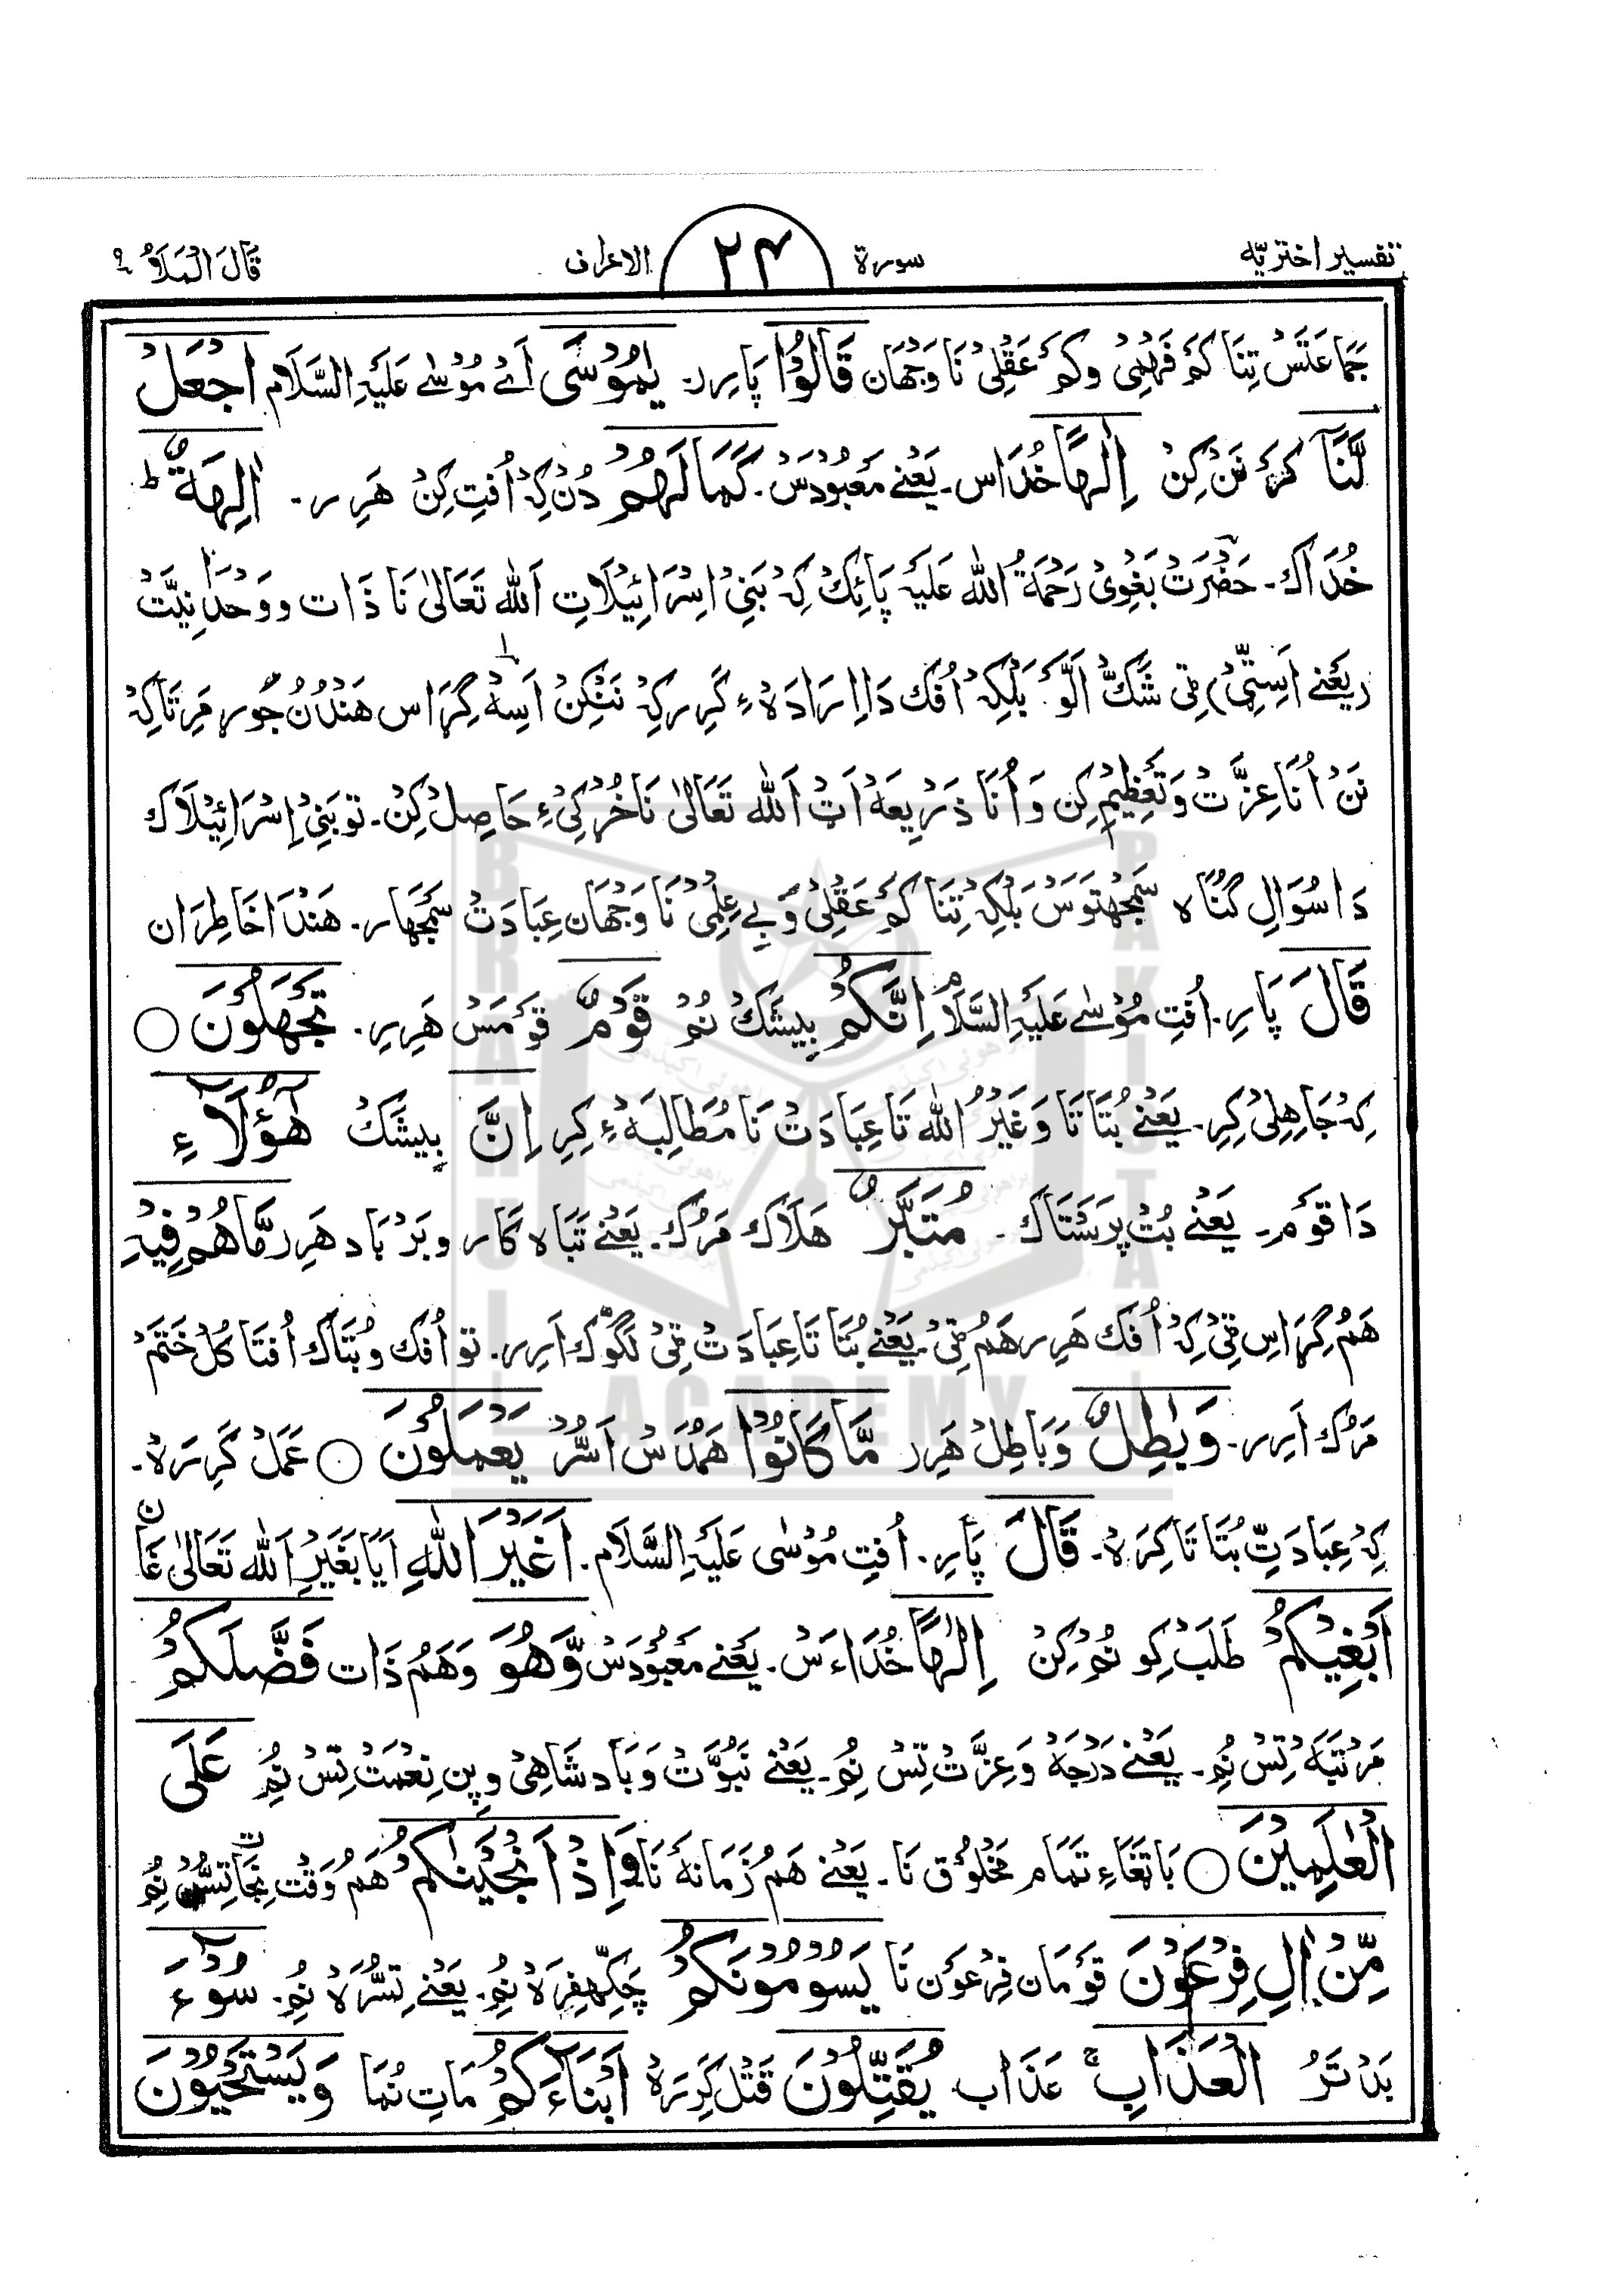 تفسیر اختریّه سورة ٢٤ الاعراف قَالَ الْمَلَاُ ٩
جَمَاعَتَسْ تِنَا كَمْ فَہْمِیْ وكَمْ عَقْلِیْ نَا وَجْهَان قَالُوْا پَارِرہ یٰمُوْسَی اَےْ مُوْسٰے عَلَیْہِ السَّلَام اجْعَلْ
لَّنَآ كَرْ نَنْ كِنْ اِلٰهًا خُدَا اس۔ یَعْنے مَعْبُوْدَسْ۔ كَمَا لَهُمْ دُنْ كِہْ اُفْتِ كِنْ هَرِر۔ اٰلِهَةٌ ؕ
خُدَاك۔ حَضْرَتْ بَغْوِیْ رَحْمَةُ اللّٰه عَلَیْہ پَائِكْ كِہْ بَنِیْ اِسْرَائِیْلَاتِ اَللّٰه تَعَالیٰ نَا ذَات و وَحْدَانِیَّتْ
(یَعْنے اَسِتِّیْ) ٹِی شَكّ اَلَّوْ۔ بَلْكِہْ اُفْك دَا اِرَادَہْءِ كَرِر كِہْ نَنْكِنْ اَسِہْ گِرَا اس هَنْدُنْ جُوْر مَرِ تَاكِہْ
نَنْ اُنَا عِزَّتْ وَتَعْظِیْمِ كِن وَ اُنَا ذَرِیْعَہْ اَٹْ اَللّٰه تَعَالیٰ نَا خُرْكِیْ ءِ حَاصِلْ كِنْ۔ تو بَنِیْ اِسْرَائِیْلَاك
دَا سُوَالِ گُنَاہ سَمْجْهتَوَسْ بَلْكِہْ تِنَا كَمْ عَقْلِیْ وَبِے عِلْمِیْ نَا وَجْهَان عِبَادَتْ سَمْجْهَار۔ هَنْدَا خَاطِرَان
قَالَ پَارِ۔ اُفْتِ مُوْسٰے عَلَیْہِ السَّلَام اِنَّكُمْ بِیْشَكْ نُمْ قَوْمٌ قَوْمَسْ هَرِرِ۔ تَجْهَلُوْنَ ○
كِہْ جَاهِلِیْ كِرِ۔ یَعْنے بُتَا تَا وَ غَیْرُ اللّٰه تَا عِبَادَتْ نَا مُطَالِبَہْ ءِ كِرِ اِنَّ بِیْشَكْ هٰۤؤُلَآءِ
دَا قَوْم۔ یَعْنے بُتْ پَرَسْتَاك۔ مُتَبَّرٌ هَلَاك مَرُك۔ یَعْنے تَبَاہ كَار و بَرْبَاد هَرِر مَّا هُمْ فِیْہِ
هَمُ گِرَا اسِ ٹِیْ كِہْ اُفَك هَرِر هَمُ ٹِیْ۔ یَعْنے بُتَا تَا عِبَادَتْ ٹِیْ لَگُوْك اَرِر۔ تو اُفَك و بُتَاك اُفْتَا كُلْ خَتْمْ
مَرُك اَرِر۔ وَبٰطِلٌ وَ بَاطِلْ هَرِر مَّا كَانُوْا هَمُدَسْ اَسُّرْ یَعْمَلُوْنَ ○ عَمَلْ كَرِرَہْ۔
كِہْ عِبَادَتِّ بُتَا تَا كِرَہْ۔ قَالَ پَارِ۔ اُفْتِ مُوْسٰی عَلَیْہِ السَّلَام۔ اَغَیْرَ اللّٰهِ اَیَا بَغَیْرِ اَللّٰه تَعَالیٰ غَان
اَبْغِیْكُمْ طَلَبْ كِو نُمْ كِنْ اِلٰهًا خُدَاءَسْ۔ یَعْنے مَعْبُوْدَسْ وَّهُوَ وَهَمُ ذَات فَضَّلَكُمْ
مَرْتَبَہْ تِسْ نُمِ۔ یَعْنے دَرْجَہْ وَ عِزَّتْ تِسْ نُمِ۔ یَعْنے نَبُوَّتْ وَ بَادشَاهِیْ وَ پِن نِعْمَتْ تِسْ نُمِ عَلَی
الْعٰلَمِیْنَ ○ بَاتِغَاءِ تَمَام مَخْلُوْق نَا۔ یَعْنے هَمُ زَمَانَہْ نَا وَاِذْ اَنْجَیْنٰكُمْ هَمُ وَقْت نِجَات تِسُّنْ نُمِ
مِّنْ اٰلِ فِرْعَوْنَ قَوْمَان فِرْعَوْن نَا یَسُوْمُوْنَكُمْ چَكِّهِفِرَہْ نُمِ۔ یَعْنے تِسُّرَہْ نُمِ۔ سُوْٓءَ
بَدْتَرُ الْعَذَابِ ۚ عَذَاب یُقَتِّلُوْنَ قَتْل كَرِرَہْ اَبْنَآءَكُمْ مَاتِ نُمَا وَیَسْتَحْیُوْنَ
BRAHUI
ACADEMY
PAKISTAN